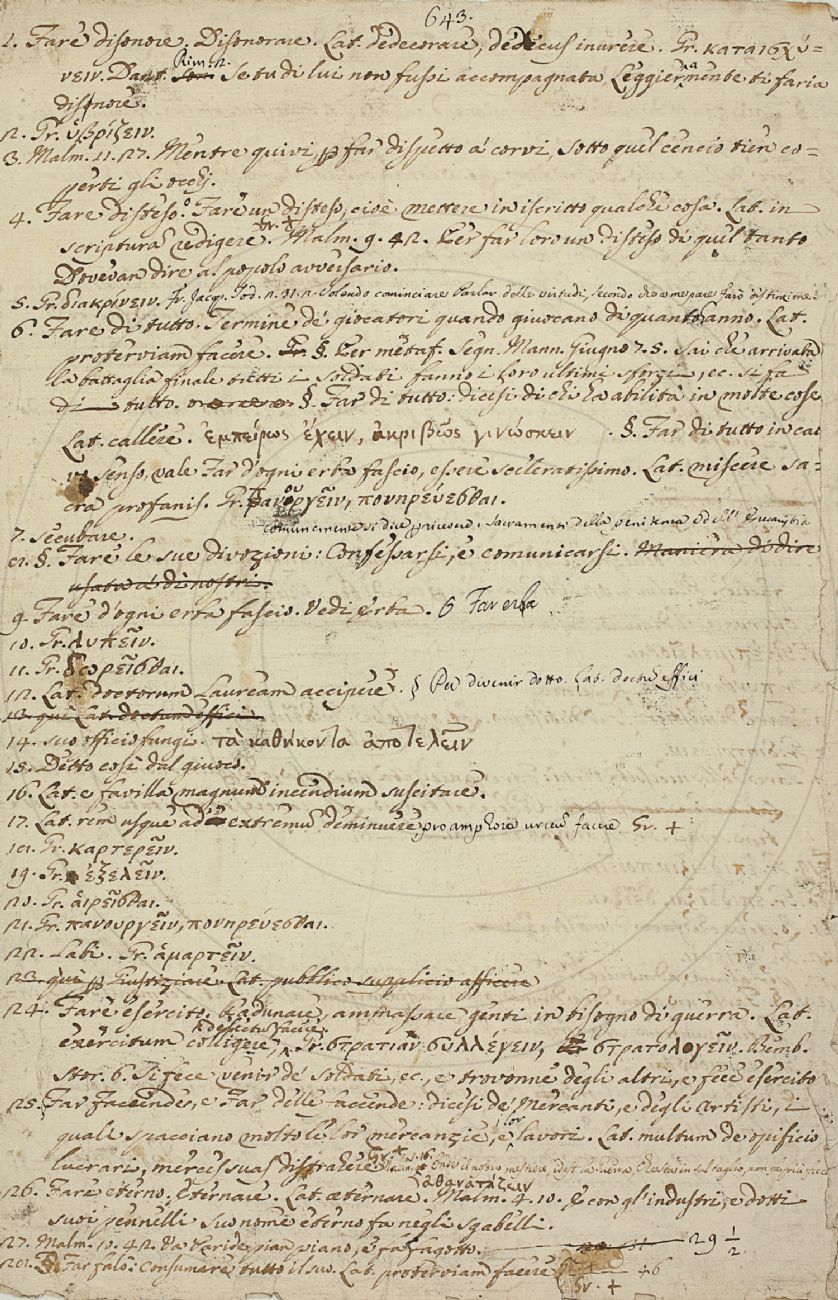 643.
1. Fare disonore. Disonorare. Lat. dedecorare, dedecus inurere. Gr. καταισχύ=
νειν. Dant. Rim. 2. Se tu di lui non fussi accompagnata, Leggiermente ti faria
disnore.
2. Gr. ὑβρίζειν.
3. Malm. 11. 27. Mentre quivi, p far dispetto a' corvi, Sotto quel cencio tien co=
perti gli occhj.
4. Fare disteso. Fare un disteso, cioè mettere in iscritto qualche cosa. Lat. in
scripturam redigere. Gr. + Malm. 9. 42. Per far loro un disteso di quel tanto
Dovevan dire al popolo avversario.
5. Gr. διακρίνειν. Fr. Jac. Tod. 2. 31. 2. Volendo cominciare Parlar delle virtudi, secondo che a me pare farò distinzione
6. Fare di tutto. Termine de' giocatori quando giuocano di quanto hanno. Lat.
proterviam facere. Gr. §. Per metaf. Segn. Mann. Giugno 7. 5. Sai che arrivata
la battaglia finale tutti i soldati fanno i loro ultimi sforzi, ec. si fa
di tutto. §. Far di tutto: dicesi di chi ha abilità in molte cose
Lat. callere. ἐμπείρως ἔχειν, ἀκριβῶς γινώσκειν. §. Far di tutto in cat
vo senso, vale Far d'ogni erba fascio, essere scelleratissimo. Lat. miscere sa=
cra profanis. Gr. πανουργεῖν, πονηρεύεσθαι.
7. Secubare.
comunemente si dice p ricevere i Sacramenti della penitenza e dell'Eucaristia
8. §. Fare le sue divozioni: Confessarsi, e comunicarsi. Maniera di dire
usata a' dì nostri.
9. Fare d'ogni erba fascio. Vedi Erba. 6 Far erba
10. Gr. λυπεῖν.
11. Gr. δωρεῖσθαι.
12. Lat. doctorum Lauream accipere. § Per divenir dotto. Lat. doctum effici
13. qui Lat. doctum effici.
14. suo officio fungi. τὰ καθήκοντα ἀποτελεῖν
15. Detto così dal giuoco.
16. Lat. e favilla magnum incendium suscitare.
17. Lat. rem usque ad extremum deminuere, pro amphora urceum facere Gr. +
18. Gr. καρτερεῖν.
19. Gr. ἐξελεῖν.
20. Gr. αἱρεῖσθαι.
21. Gr. πανουργεῖν, πονηρεύεσθαι.
22. Labi. Gr. ἁμαρτεῖν.
23. qui p Giustiziare. Lat. pubblico supplicio afficere
24. Fare esercito. Radunare, ammassare genti in bisogno di guerra. Lat.
exercitum colligere, delectus facere. Gr. στρατιὰν συλλέγειν, στρατολογεῖν. Bemb.
Stor. 6. Si fece venir de' soldati, ec., e trovonne degli altri, e fece esercito
25. Far faccende, e Far delle faccende: dicesi de' Mercanti, e degli Artisti, i
quali spacciano molto le lor mercanzie, e i lor lavori. Lat. multum de opificio
lucrari, merces suas distrahere. Gr. +
26. Fare eterno. Eternare. Lat. æternare. ἀθανατίζειν Malm. 4. 10. E con gl'industri, e dotti
suoi pennelli Suo nome eterno fa negli sgabelli.
27. Malm. 10. 42. Va Paride pian piano, e fa fagotto. 29 1/2
28. Far falò: Consumare tutto il suo. Lat. proterviam facere 6
Gr. +